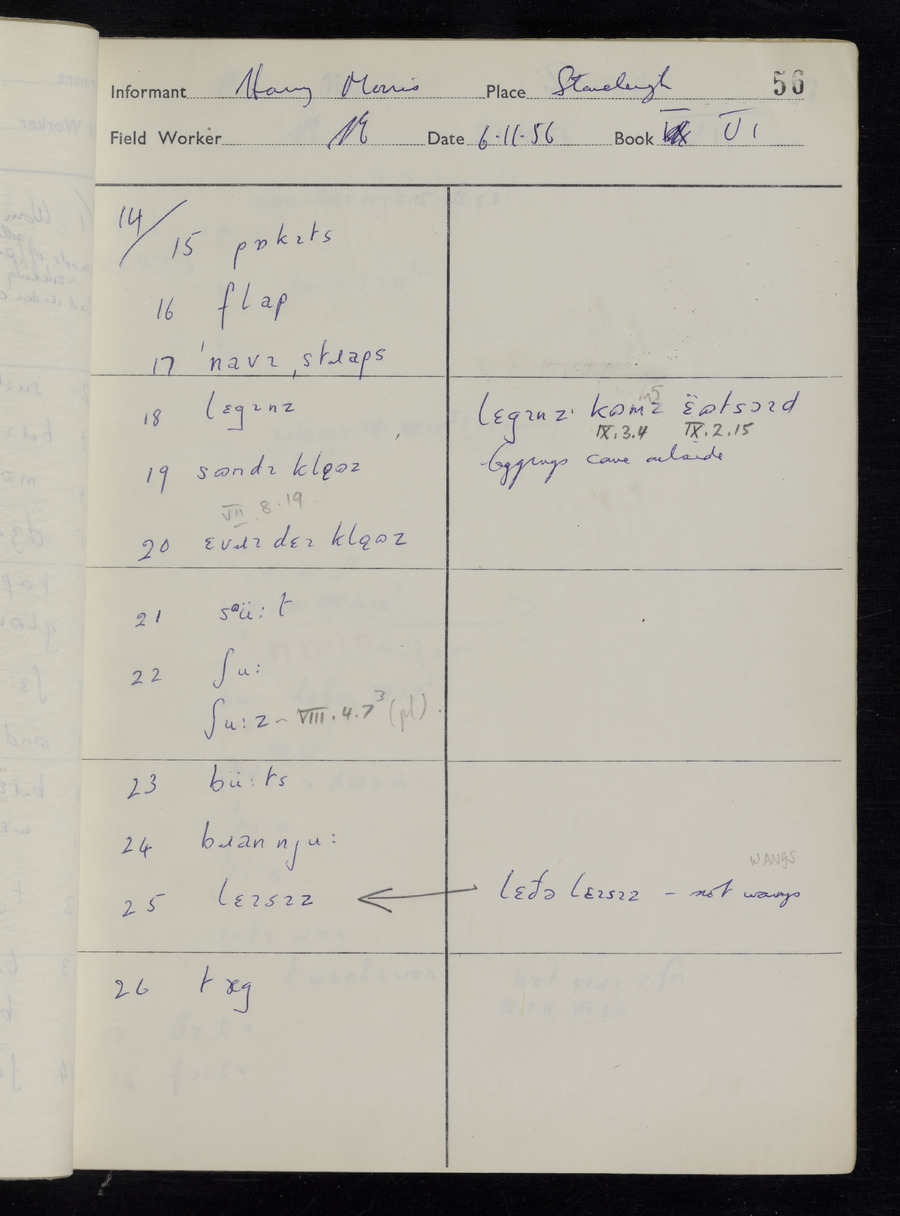 Informant Harry Morris Place Stoneleigh 56
Field Worker Date 6·11·56 Book VI
14/15 pɒkɪts
16 flap
17 ˈnavɪ ˌstɹaps
18 lɛgɪnz
lɛgɪnz kɷmz ɛ̈ɷtsɔɪd
IX.3.4 IX.2.15
Leggings come outside
19 sɷndɪ klǫɷz
VIII 8.19
20 ɛvɹɪ dɛɪ klǫɷz
21 sᵊü:t
22 ʃu:
ʃu:z – VIII.4.7³ (pl).
23 bü:ts
24 bɹan nju:
WANGS
25 lɛɪsɪz
lɛðə lɛɪsɪz – not wangs
26 ɹæg